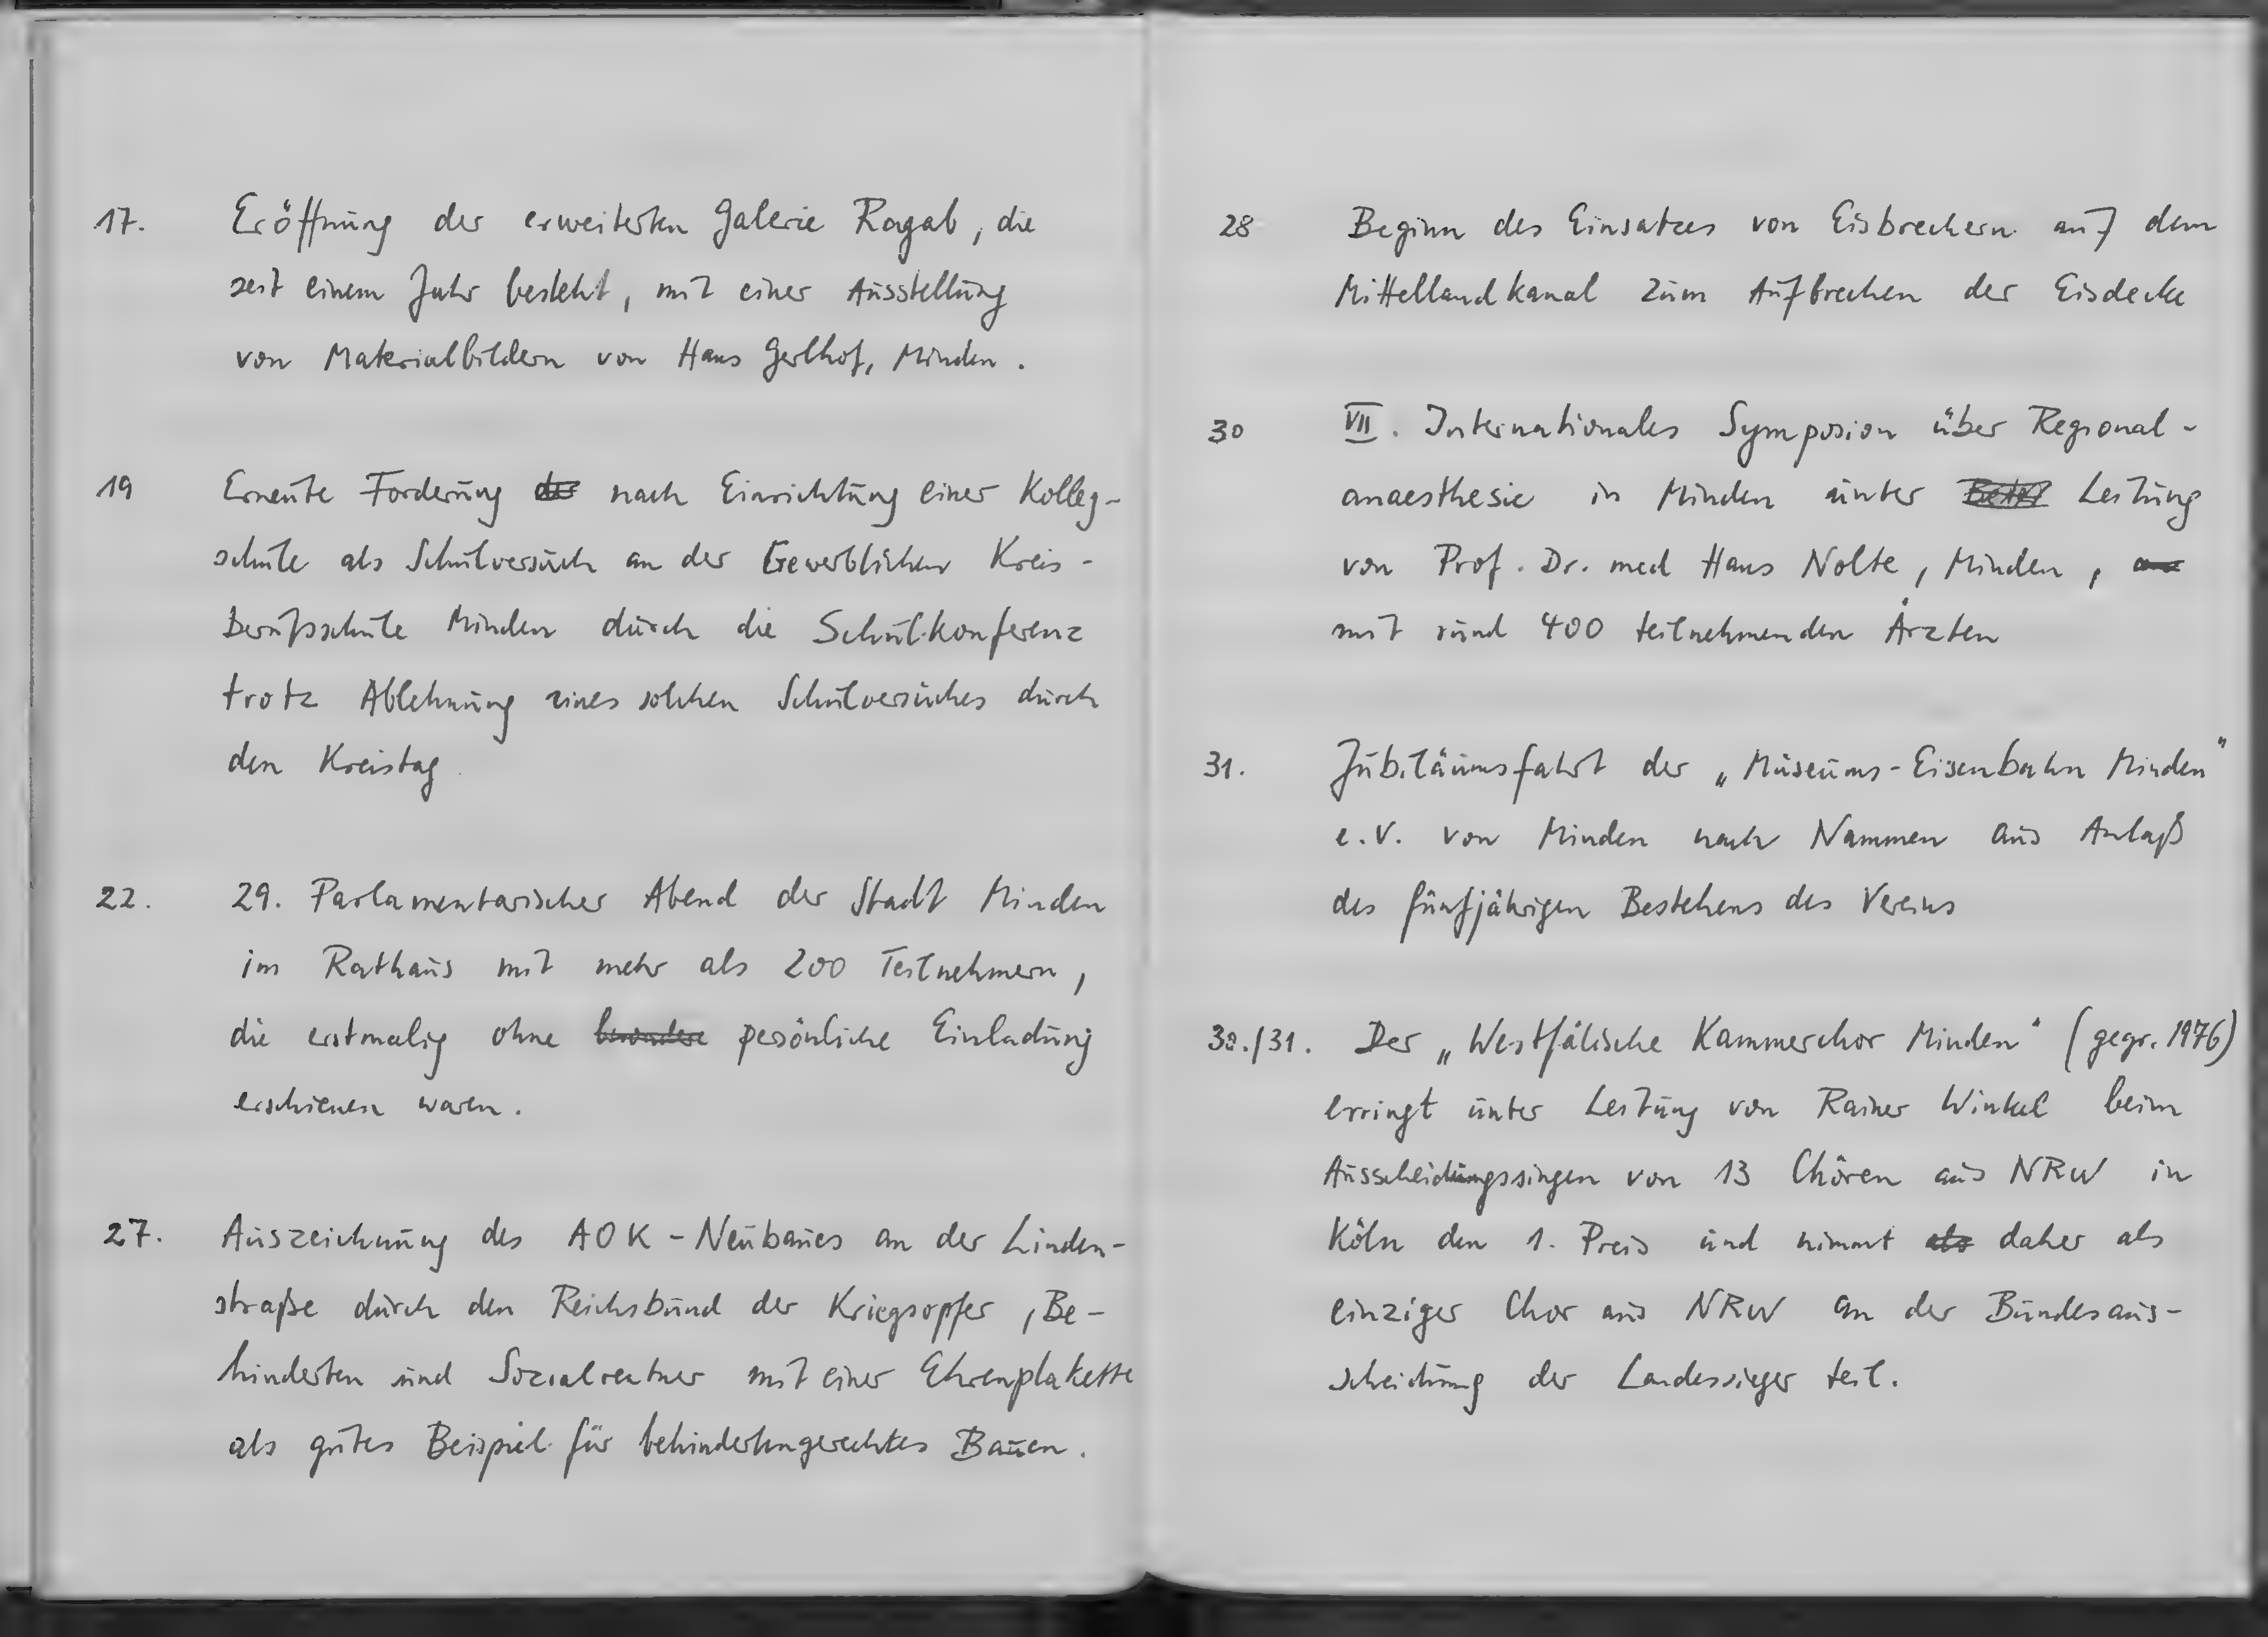 17. Eröffnung der erweiterten Galerie Ragab, die
seit einem Jahr besteht, mit einer Ausstellung
von Materialbildern von Hans Gerlhof, Minden.
19 Erneute Forderung der nach Einrichtung einer Kolleg-
schule als Schulversuch an der Gewerblichen Kreis-
berufsschule Minden durch die Schulkonferenz
trotz Ablehnung eines solchen Schulversuches durch
den Kreistag
22. 29. Parlamentarischer Abend der Stadt Minden
im Rathaus mit mehr als 200 Teilnehmern,
die erstmalig ohne besondere persönliche Einladung
erschienen waren.
27. Auszeichnung des AOK-Neubaues an der Linden-
straße durch den Reichsbund der Kriegsopfer, Be-
hinderten und Sozialrentner mit einer Ehrenplakette
als gutes Beispiel für behindertengerechtes Bauen.
28 Beginn des Einsatzes von Eisbrechern auf dem
Mittellandkanal zum Aufbrechen der Eisdecke
30 VII. Internationales Symposion über Regional-
anaesthesie in Minden unter Leitung
von Prof. Dr. med Hans Nolte, Minden,
mit rund 400 teilnehmenden Ärzten
31. Jubiläumsfahrt der „Museums-Eisenbahn Minden"
e.V. von Minden nach Nammen aus Anlaß
des fünfjährigen Bestehens des Vereins
30./31. Der „Westfälische Kammerchor Minden" (gegr. 1976)
erringt unter Leitung von Rainer Winkel beim
Ausscheidungssingen von 13 Chören aus NRW in
Köln den 1. Preis und nimmt als daher als
einziger Chor aus NRW an der Bundesaus-
scheidung der Landessieger teil.